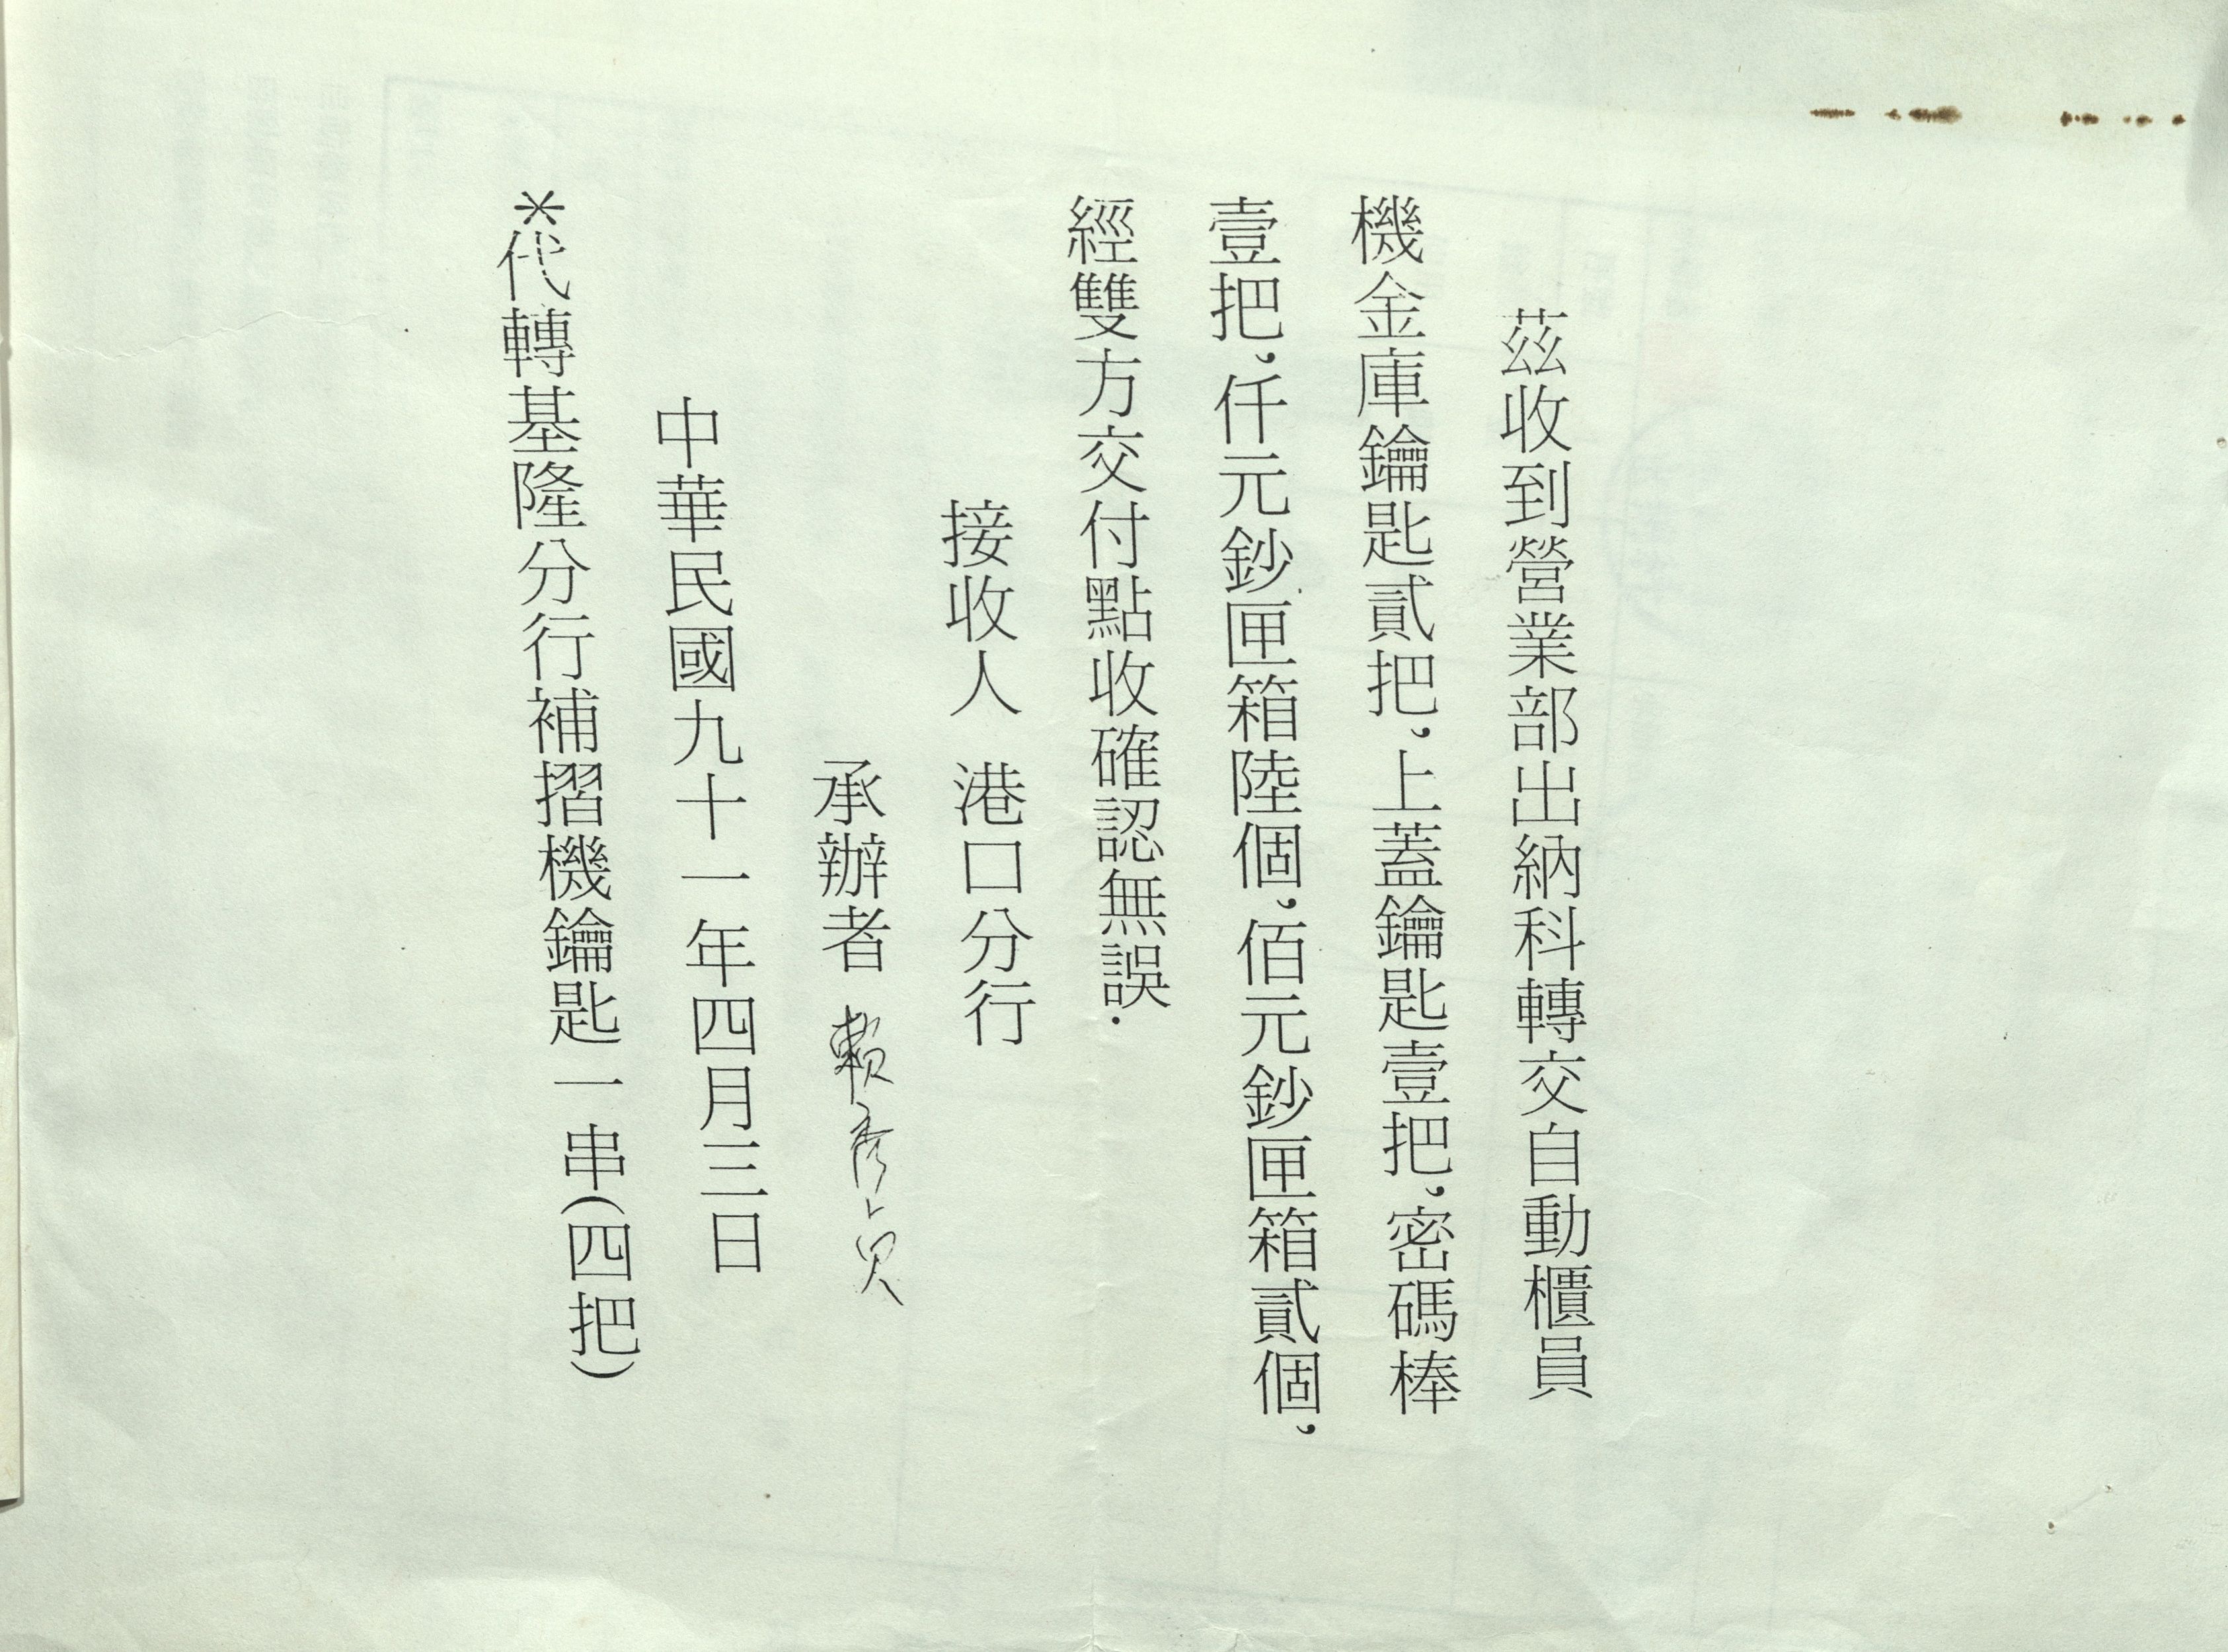 茲收到營業部出納科轉交自動櫃員
機金庫鑰匙貳把,上蓋鑰匙壹把,密碼棒
壹把,仟元鈔匣箱陸個,佰元鈔匣箱貳個,
經雙方交付點收確認無誤.
接收人 港口分行
承辦者 賴
中華民國九十一年四月三日
*代轉基隆分行補摺機鑰匙一串(四把)